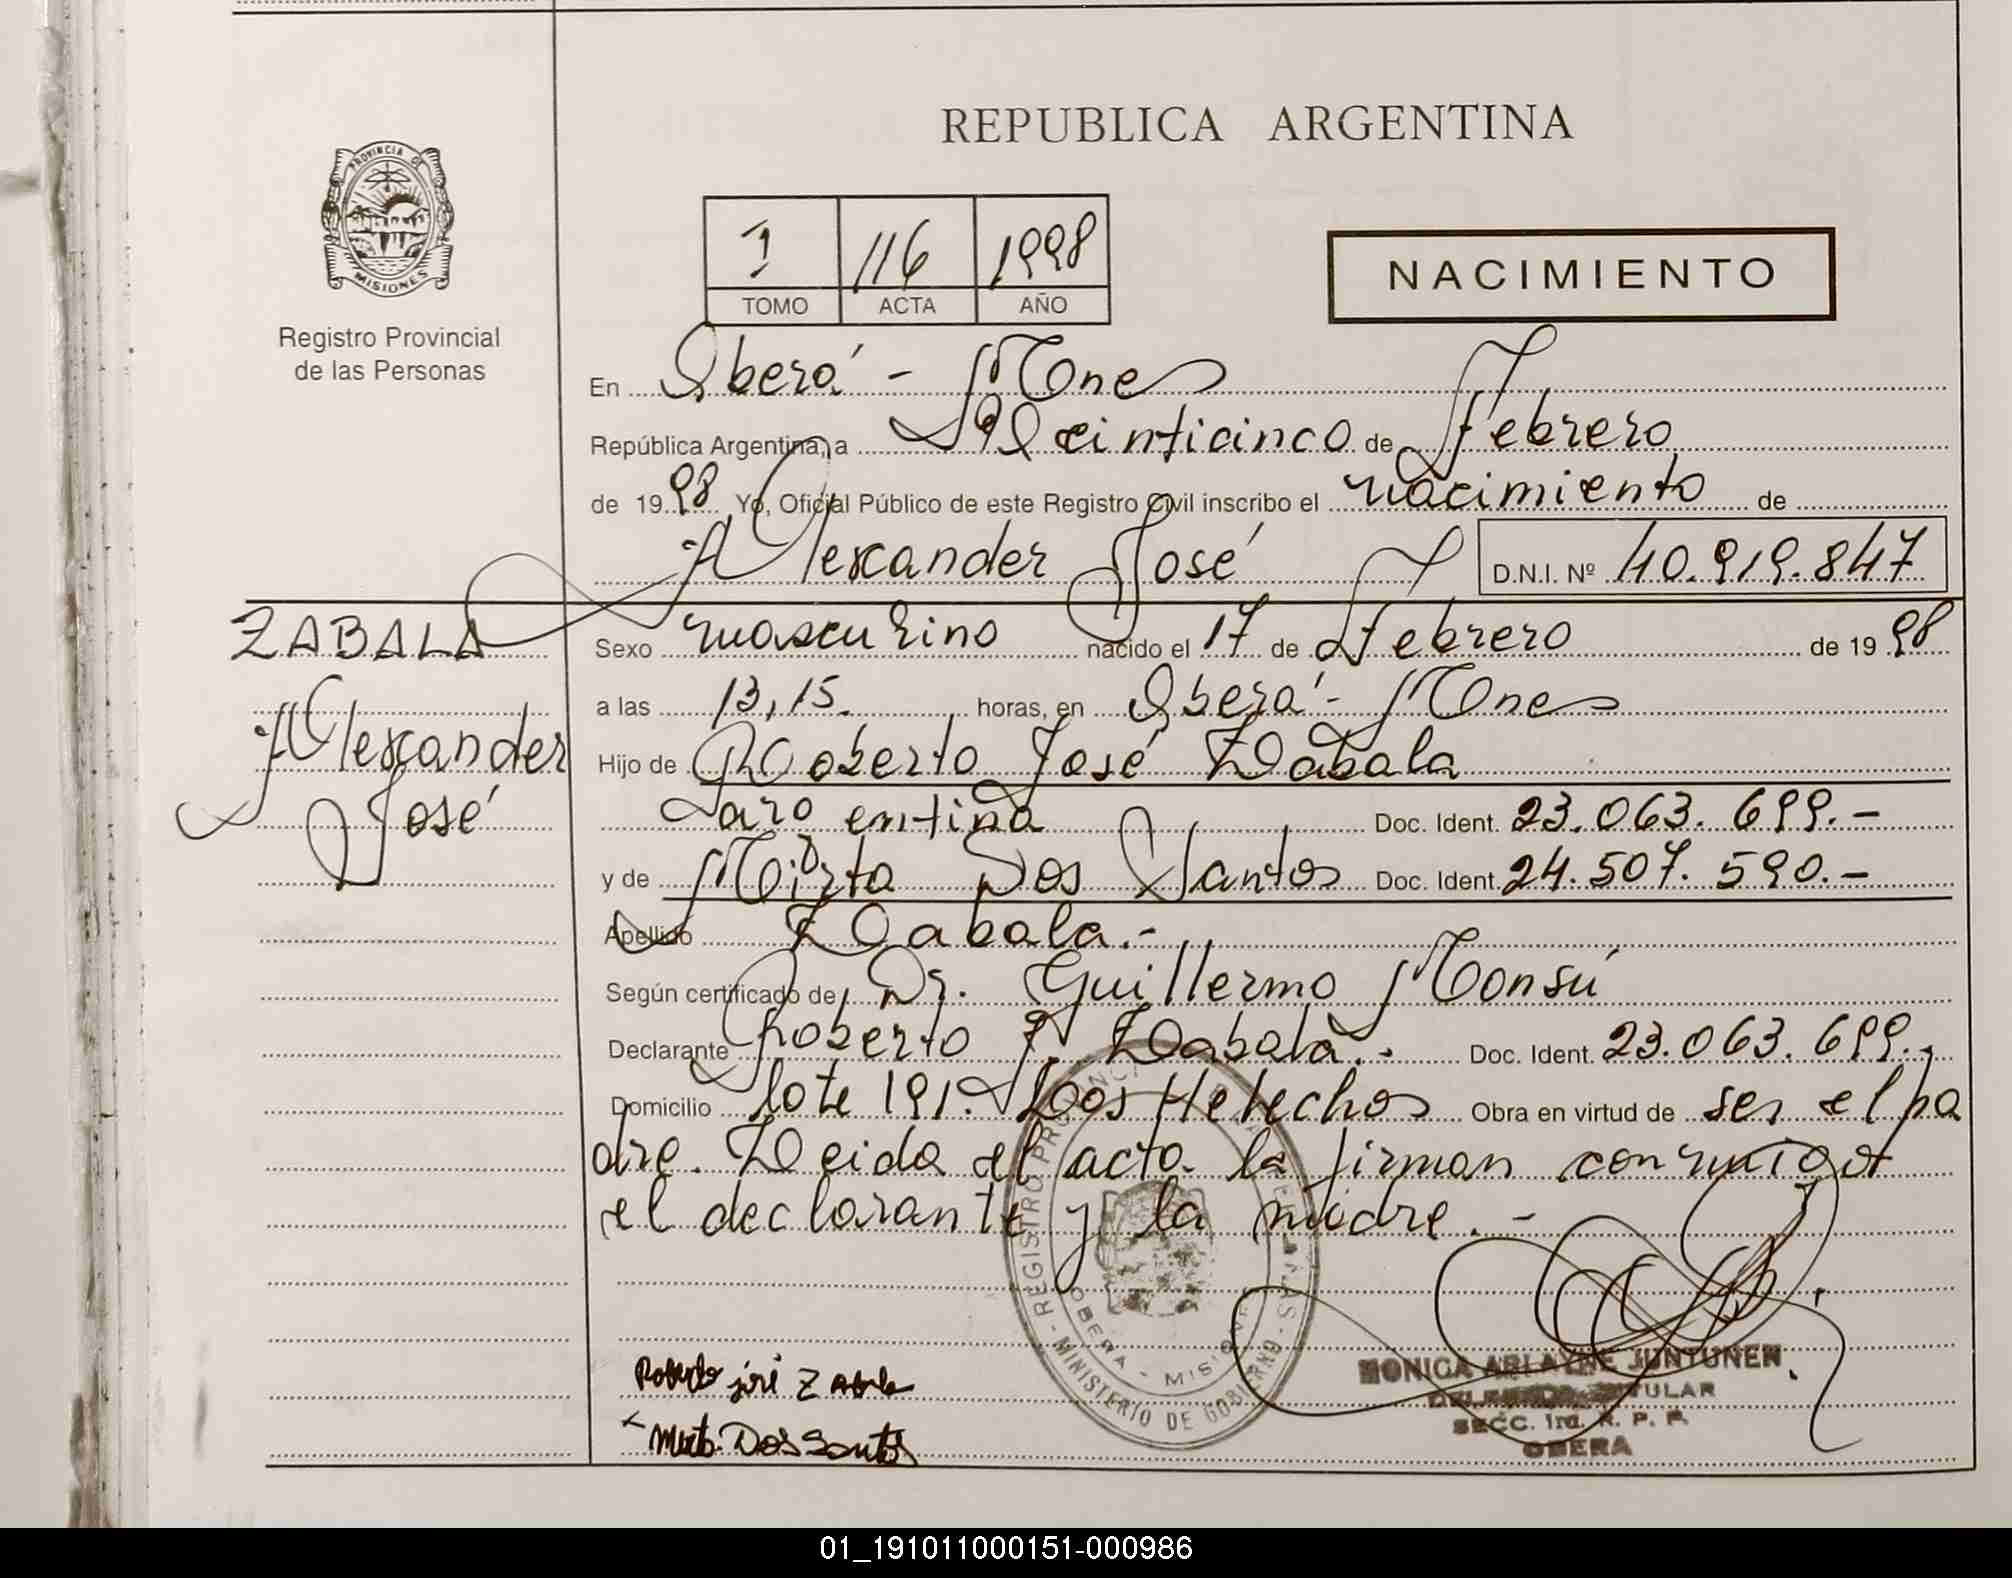 REPUBLICA ARGENTINA
PROVINCIA DE
MISIONES
Registro Provincial
de las Personas
1 116 1998
TOMO ACTA AÑO
NACIMIENTO
En Oberá - Mnes
República Argentina, a Veinticinco de Febrero
de 1998 Yo, Oficial Público de este Registro Civil inscribo el nacimiento de
Alexander José D.N.I. Nº 40.919.847
ZABALA
Alexander
José
Sexo masculino nacido el 17 de Febrero de 1998
a las 13,15. horas, en Oberá - Mnes
Hijo de Roberto José Zabala
argentina Doc. Ident. 23.063.699.-
y de Mirta Dos Santos Doc. Ident. 24.507.590.-
Apellido Zabala.-
Según certificado de Dr. Guillermo Monsú
Declarante Roberto J. Zabala.- Doc. Ident. 23.063.699.-
Domicilio lote 191. Los Helechos Obra en virtud de ser el pa
dre. Leida el acta la firman conmigo
el declarante y la madre.-
REGISTRO PROVINCIAL DE LAS PERSONAS
- MINISTERIO DE GOBIERNO -
OBERA - MISIONES
Roberto josé Zabala
Mirta Dos Santos
MONICA ARLAINE JUNTUNEN
DELEGADA TITULAR
SECC. 1ra. R. P. P.
OBERA
01_191011000151-000986